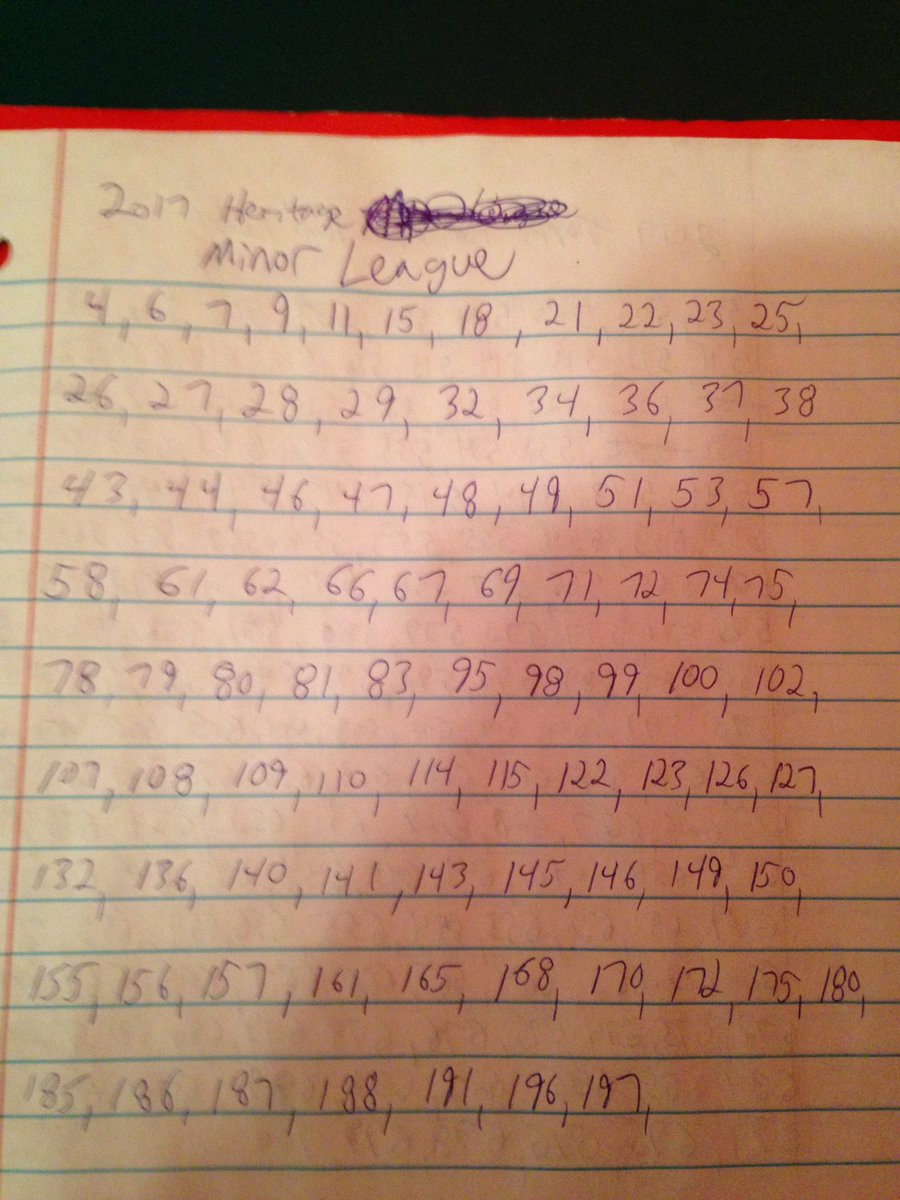 2017 Heritage
Minor League
4, 6, 7, 9, 11, 15, 18, 21, 22, 23, 25,
26, 27, 28, 29, 32, 34, 36, 37, 38
43, 44, 46, 47, 48, 49, 51, 53, 57,
58, 61, 62, 66, 67, 69, 71, 72, 74, 75,
78, 79, 80, 81, 83, 95, 98, 99, 100, 102,
107, 108, 109, 110, 114, 115, 122, 123, 126, 127,
132, 136, 140, 141, 143, 145, 146, 149, 150,
155, 156, 157, 161, 165, 168, 170, 172, 175, 180,
185, 186, 187, 188, 191, 196, 197,